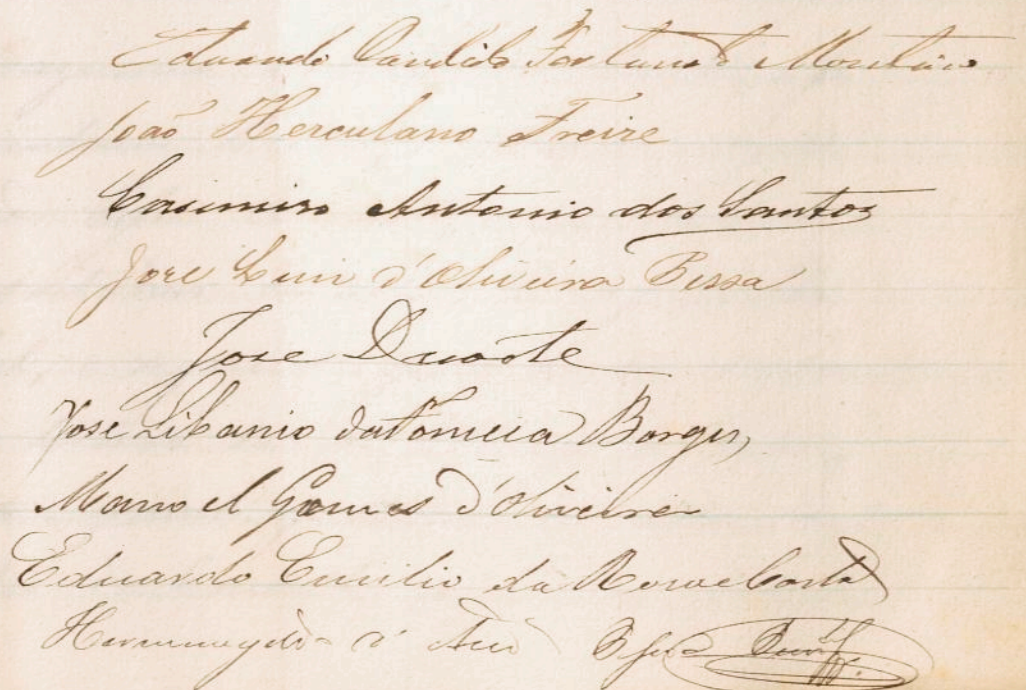 Eduardo Candido Fortunato Monteiro
João Herculano Freire
Casimiro Antonio dos Santos
Jose Luis d'Oliveira Bessa
Jose Duarte
Jose Libanio da Borges
Manoel Gomes d'Oliveira
Eduardo Emilio da Costa